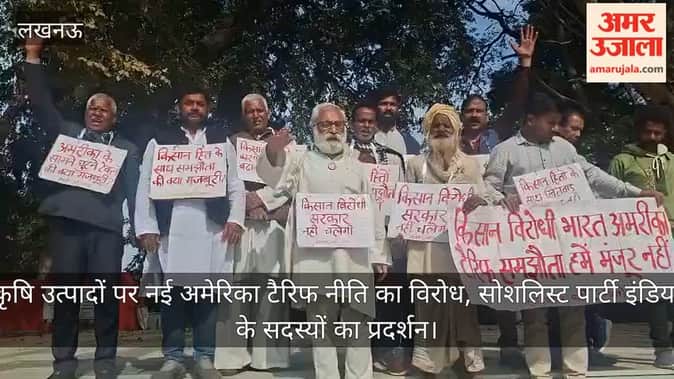 लखनऊ
अमर
उजाला
amarujala.com
अमेरिका के
सामने घुटने टेकने
की क्या मजबूरी
किसान हित के
साथ समझौता
की क्या मजबूरी
किसान विरोधी
सरकार
नहीं चलेगी
किसान विरोधी
सरकार
नहीं चलेगी
किसान हित के
साथ खिलवाड़
किसान विरोधी भारत अमरीका
टैरिफ समझौता हमें मंजूर नहीं
कृषि उत्पादों पर नई अमेरिका टैरिफ नीति का विरोध, सोशलिस्ट पार्टी इंडिय
के सदस्यों का प्रदर्शन।